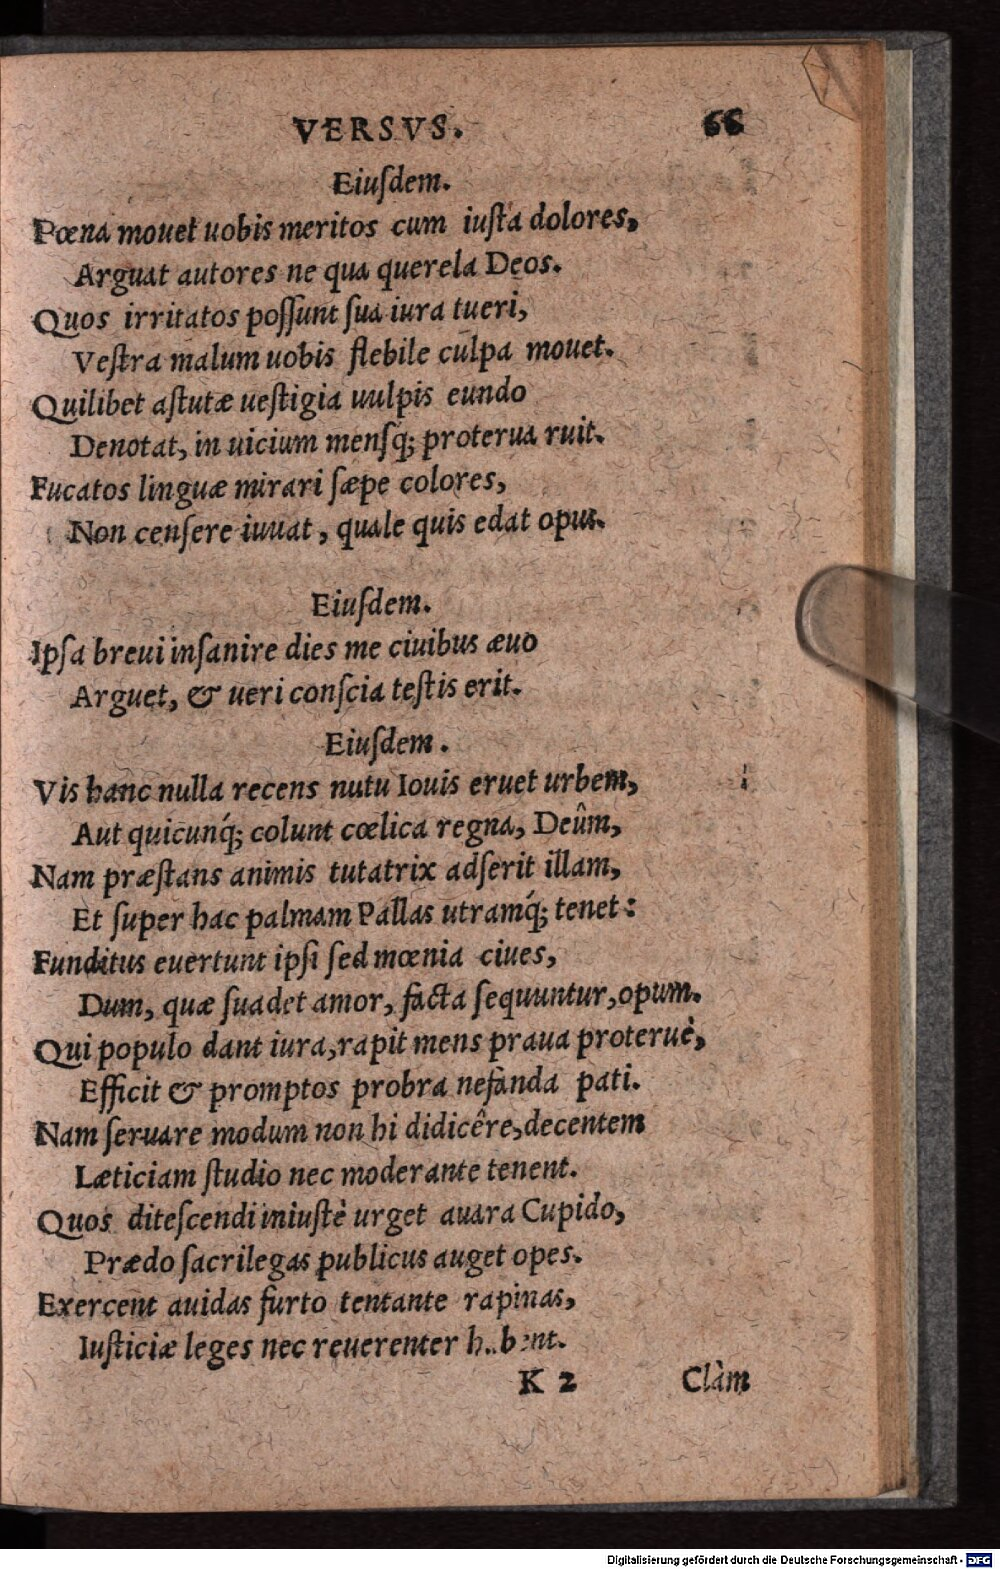 VERSVS. 66
Eiuſdem.
Pœna mouet uobis meritos cum iuſta dolores,
Arguat autores ne qua querela Deos.
Quos irritatos poſſunt ſua iura tueri,
Veſtra malum uobis flebile culpa mouet.
Quilibet aſtutæ ueſtigia uulpis eundo
Denotat, in uicium menſq́; proterua ruit.
Fucatos linguæ mirari ſæpe colores,
Non cenſere iuuat, quale quis edat opus.
Eiuſdem.
Ipſa breui inſanire dies me ciuibus æuo
Arguet, & ueri conſcia teſtis erit.
Eiuſdem.
Vis hanc nulla recens nutu Iouis eruet urbem,
Aut quicunq́; colunt cœlica regna, Deûm,
Nam præſtans animis tutatrix adſerit illam,
Et ſuper hac palmam Pallas utramq́; tenet:
Funditus euertunt ipſi ſed mœnia ciues,
Dum, quæ ſuadet amor, facta ſequuntur, opum.
Qui populo dant iura, rapit mens praua proteruè,
Efficit & promptos probra nefanda pati.
Nam ſeruare modum non hi didicêre, decentem
Læticiam ſtudio nec moderante tenent.
Quos diteſcendi iniuſtè urget auara Cupido,
Prædo ſacrilegas publicus auget opes.
Exercent auidas furto tentante rapinas,
Iuſticiæ leges nec reuerenter
K 2 Clàm
Digitalisierung gefördert durch die Deutsche Forschungsgemeinschaft - DFG